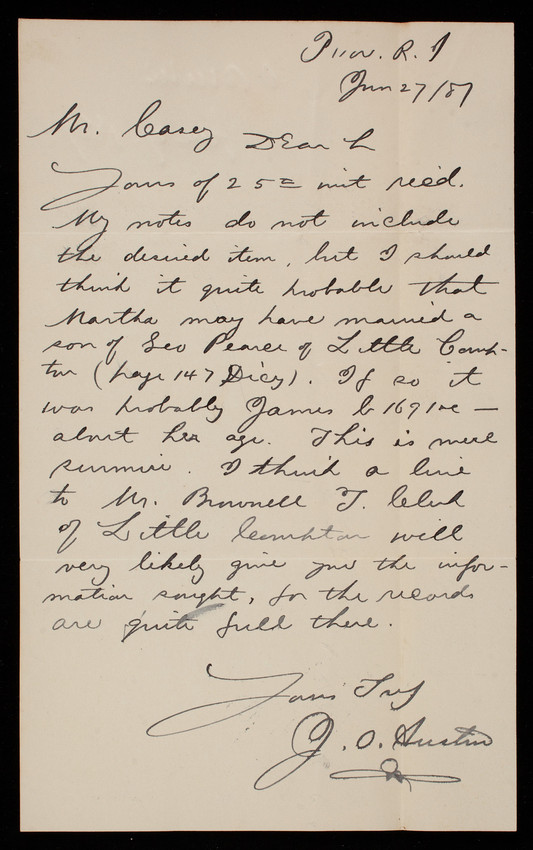 Prov. R. I
Jun 27/87
Mr. Casey
Dear Sr
Yours of 25th inst rec'd.
My notes do not include
the desired item, but I should
think it quite probable that
Martha may have married a
son of Geo Pearce of Little Comp-
ton (page 147 Dicy). If so it
was probably James b 1691 &c —
about her age. This is mere
surmise. I think a line
to Mr. Brownell T. Clerk
of Little Compton will
very likely give you the infor-
mation sought, for the records
are quite full there.
Yours Try
J. O. Austin